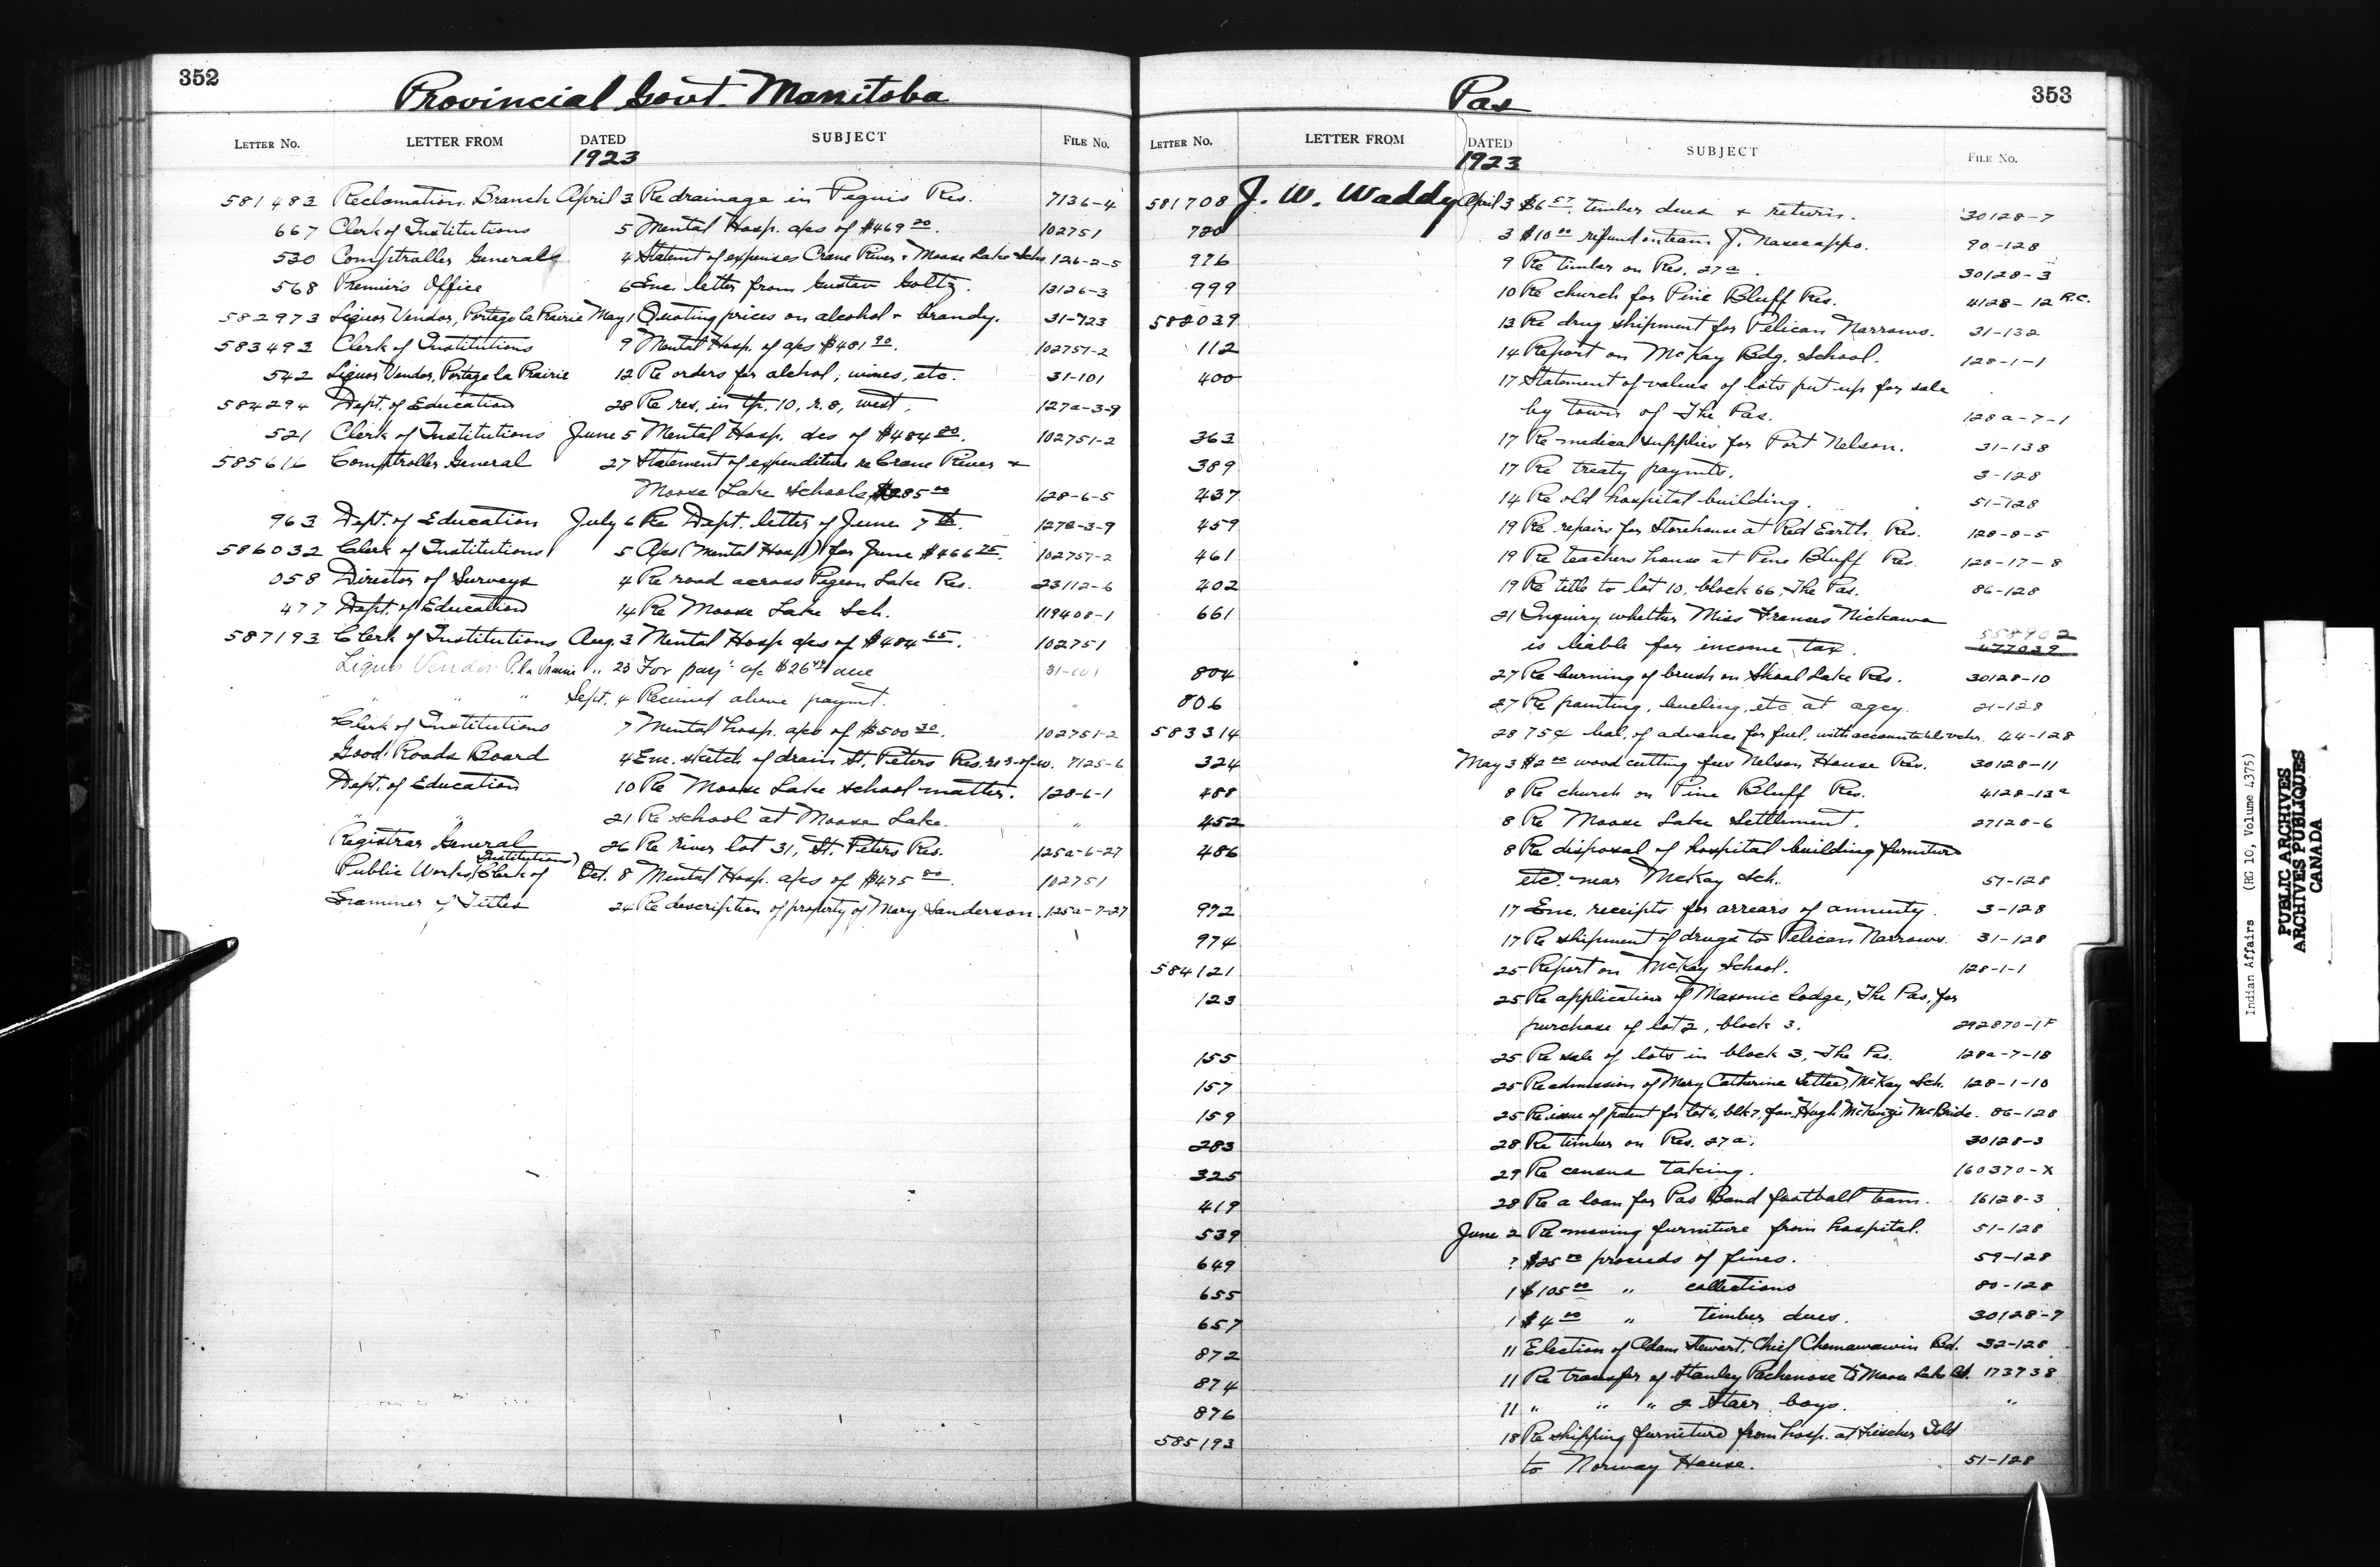 352
Provincial Govt. Manitoba
LETTER No. LETTER FROM DATED SUBJECT FILE No.
1923
581483 Reclamation Branch April 3 Re drainage in Peguis Res. 7136-4
667 Clerk of Institutions 5 Mental Hosp. a/cs of $469 20. 102751
530 Comptroller General 4 Statemt of expenses Crane River & Moose Lake Schs. 126-2-5
568 Premier's Office 6 Enc. letter from Gustav Goltz. 13126-3
582973 Liquor Vendor, Portage la Prairie May 1 Quoting prices on alcohol & brandy. 31-723
583493 Clerk of Institutions 9 Mental Hosp. of a/cs $481 90. 102751-2
542 Liquor Vendor, Portage la Prairie 12 Re orders for alchol, wines, etc. 31-101
584294 Dept. of Education 28 Re res. in tp. 10, r. 8, west. 127a-3-9
521 Clerk of Institutions June 5 Mental Hosp. acs of $484 80. 102751-2
585616 Comptroller General 27 Statement of expenditure re Crane River &
Moose Lake Schools 128-6-5
963 Dept. of Education July 6 Re Dept. letter of June 7th. 127a-3-9
586032 Clerk of Institutions 5 A/cs (Mental Hosp) for June $466 75. 102751-2
058 Director of Surveys 4 Re road across Pigeon Lake Res. 23112-6
477 Dept. of Education 14 Re Moose Lake Sch. 119408-1
587193 Clerk of Institutions Aug. 3 Mental Hosp a/cs of $484 65. 102751
Liquor Vendor P. la Prairie " 23 For pay't a/c due 31-101
" " " Sept. 4 Received above paymt. "
Clerk of Institutions 7 Mental hosp. a/cs of $500 30. 102751-2
Good Roads Board 4 Enc. sketch of drain St. Peters Res. re r-of-w. 7125-6
Dept. of Education 10 Re Moose Lake school matter. 128-6-1
" " 21 Re school at Moose Lake. "
Registrar General 26 Re river lot 31, St. Peters Res. 125a-6-27
Public Works (Clerk of Institutions) Oct. 8 Mental Hosp. a/cs of $475 80. 102751
Examiner of Titles 24 Re description of property of Mary Sanderson. 125a-7-27
353
Pas
LETTER No. LETTER FROM DATED SUBJECT FILE No.
1923
581708 J. W. Waddy April 3 $6 57. timber dues & return. 30128-7
720 3 $10 00 refund on team J. 90-128
976 9 Re timber on Res. 27a. 30128-3
999 10 Re church for Pine Bluff Res. 4128-12 R.C.
582039 13 Re drug shipment for Pelican Narrows. 31-132
112 14 Report on McKay Bdg. School. 128-1-1
400 17 Statement of values of lots put up for sale
by town of The Pas. 128a-7-1
363 17 Re medical supplies for Port Nelson. 31-138
389 17 Re treaty paymts. 3-128
437 14 Re old hospital building. 51-128
459 19 Re repairs for storehouse at Red Earth Res. 128-8-5
461 19 Re teachers house at Pine Bluff Res. 128-17-8
402 19 Re title to lot 10, block 66, The Pas. 86-128
661 21 Inquiry whether Miss Frances Nickawa 558902
is liable for income tax. 477039
804 27 Re burning of brush on Shoal Lake Res. 30128-10
806 27 Re painting, leveling, etc at agcy. 21-128
583314 28 75¢ bal. of advance for fuel, with accountable vchr. 44-128
324 May 3 $2 00 wood cutting fees Nelson House Res. 30128-11
488 8 Re church on Pine Bluff Res. 4128-13a
452 8 Re Moose Lake Settlement. 27128-6
486 8 Re disposal of hospital building furniture
etc. near McKay Sch. 51-128
972 17 Enc. receipts for arrears of annuity. 3-128
974 17 Re shipment of drugs to Pelican Narrows. 31-128
584121 25 Report on McKay School. 128-1-1
123 25 Re application of Masonic lodge, The Pas, for
purchase of lot 2, block 3. 292870-1F
155 25 Re sale of lots in block 3, The Pas. 128a-7-18
157 25 Re admission of Mary Catherine Settee, McKay Sch. 128-1-10
159 25 Re issue of patent for lot 6, blk 7, fav. Hugh McKenzie McBride. 86-128
283 28 Re timber on Res. 27a. 30128-3
325 29 Re census taking. 160370-X
419 28 Re a loan for Pas Band football team. 16128-3
539 June 2 Re moving furniture from hospital. 51-128
649 ? $25 00 proceeds of fines. 59-128
655 1 $105 00 " collections 80-128
657 1 $4 00 " timber dues. 30128-7
872 11 Election of Adam Stewart, Chief Chemawawin Bd. 32-128
874 11 Re transfer of Stanley Pachenose to Moose Lake Bd. 173738
876 11 " " " 2 Starr boys. "
585193 18 Re shipping furniture from hosp. at Fischer
to Norway House. 51-128
Indian Affairs (RG 10, Volume 4375)
PUBLIC ARCHIVES
ARCHIVES PUBLIQUES
CANADA